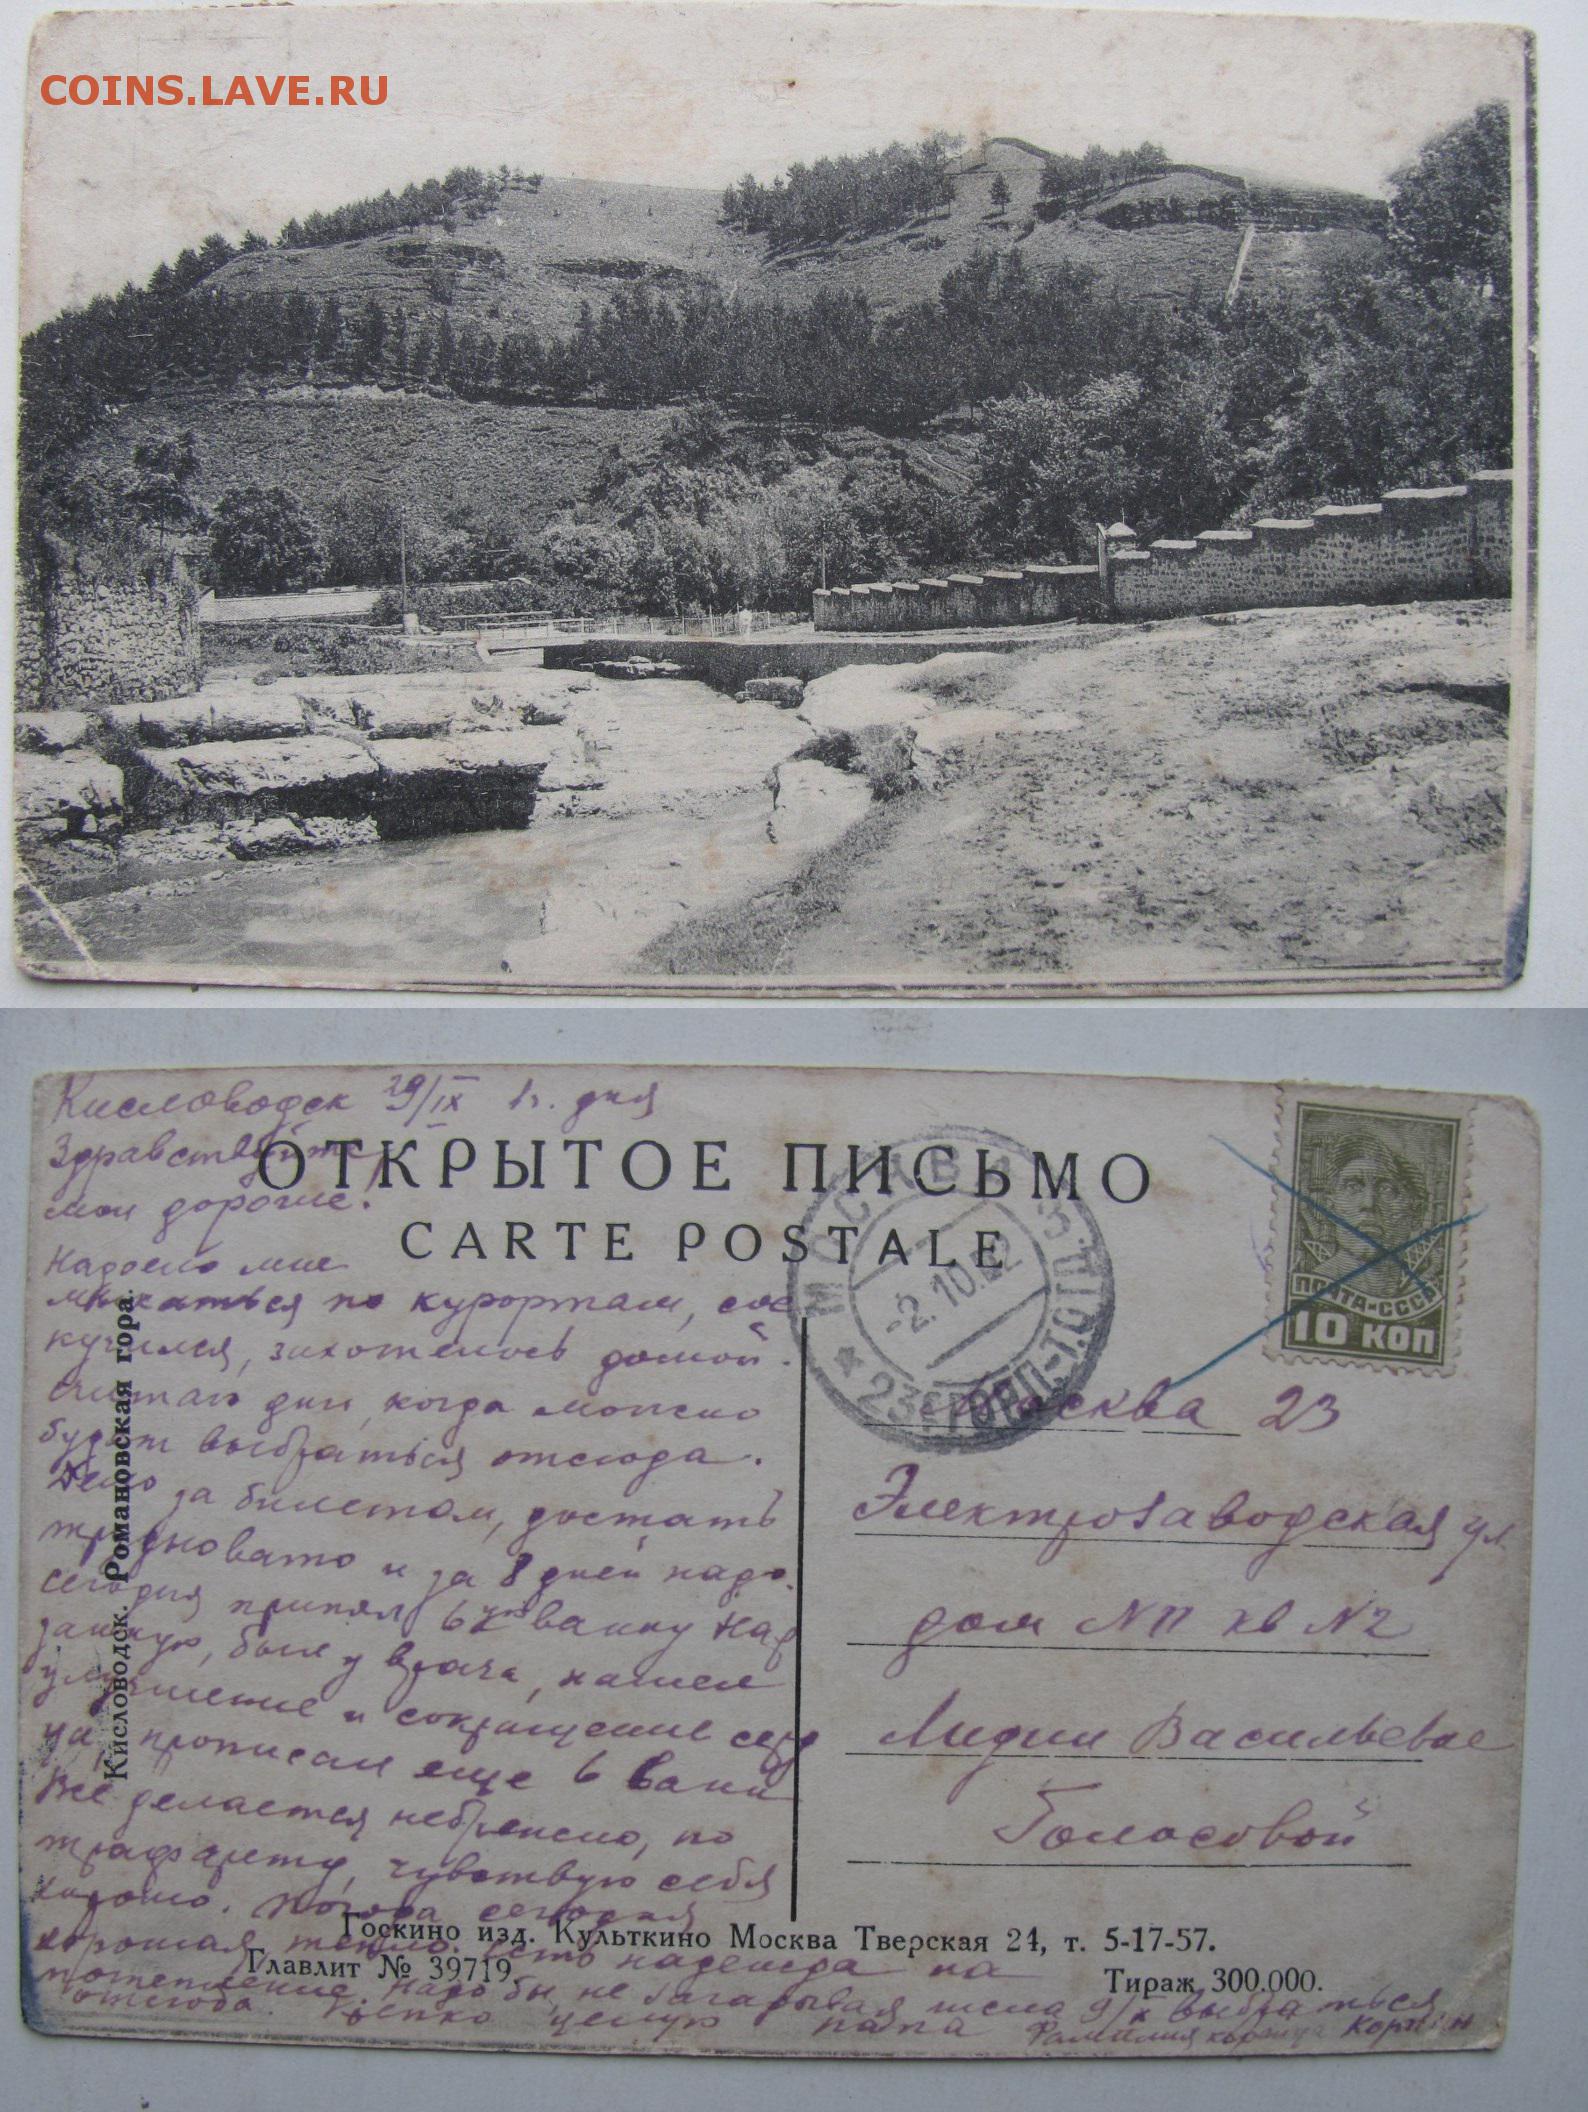 COINS.LAVE.RU
Кисловодск 29/IX 1 ч. дня
Здравствуйте
мои дорогие!
Надоело мне
мыкаться по курортам, сос
кучился, захотелось домой.
Считаю дни, когда можно
будет выбраться отсюда.
Дело за билетом, достать
трудновато и за 8 дней надо.
Сегодня принял 6ую ванну Нар
занную, был у врача, нашел
улучшение и сокращение серд
ца, прописал еще 6 ванн
Все делается небрежно, по
трафарету, чувствую себя
хорошо. Погода сегодня
хорошая, тепло. Есть надежда на
потепление. Надо бы, не загадывая, числа 9/X выбраться
отсюда. Крепко целую папа
Фамилия
ОТКРЫТОЕ ПИСЬМО
CARTE POSTALE
МОСКВА
-2.10.32
* 23
ПОЧТА-СССР
10 КОП
Москва 23
Электрозаводская ул
дом № 11 кв № 2
Лидии Васильевне
Голосовой
Кисловодск. Романовская гора.
Госкино изд. Культкино Москва Тверская 24, т. 5-17-57.
Главлит № 39719.
Тираж 300.000.